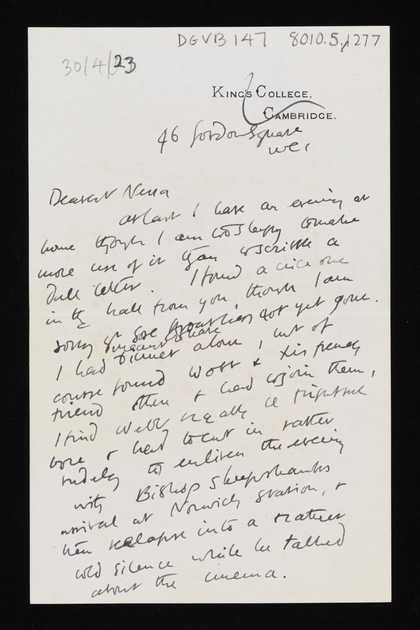 DGVB 147 8010.5.1277
30/4/23
KING'S COLLEGE,
CAMBRIDGE.
46 Gordon Square
WC1
Dearest Nessa
At last I have an evening at
home though I am too sleepy to make
more use of it than to scribble a
dull letter. I found a nice one
in the hall from you, though I am
sorry yr gone
I had dinner alone, but of
course found & his
friend there & had to join them,
I find really a frightful
bore & had to cut in rather
rudely to enliven the evening
with Bishop Sheepshanks
arrival at Norwich Station, &
then relapse into a rather
cold silence while he talked
about the cinema.